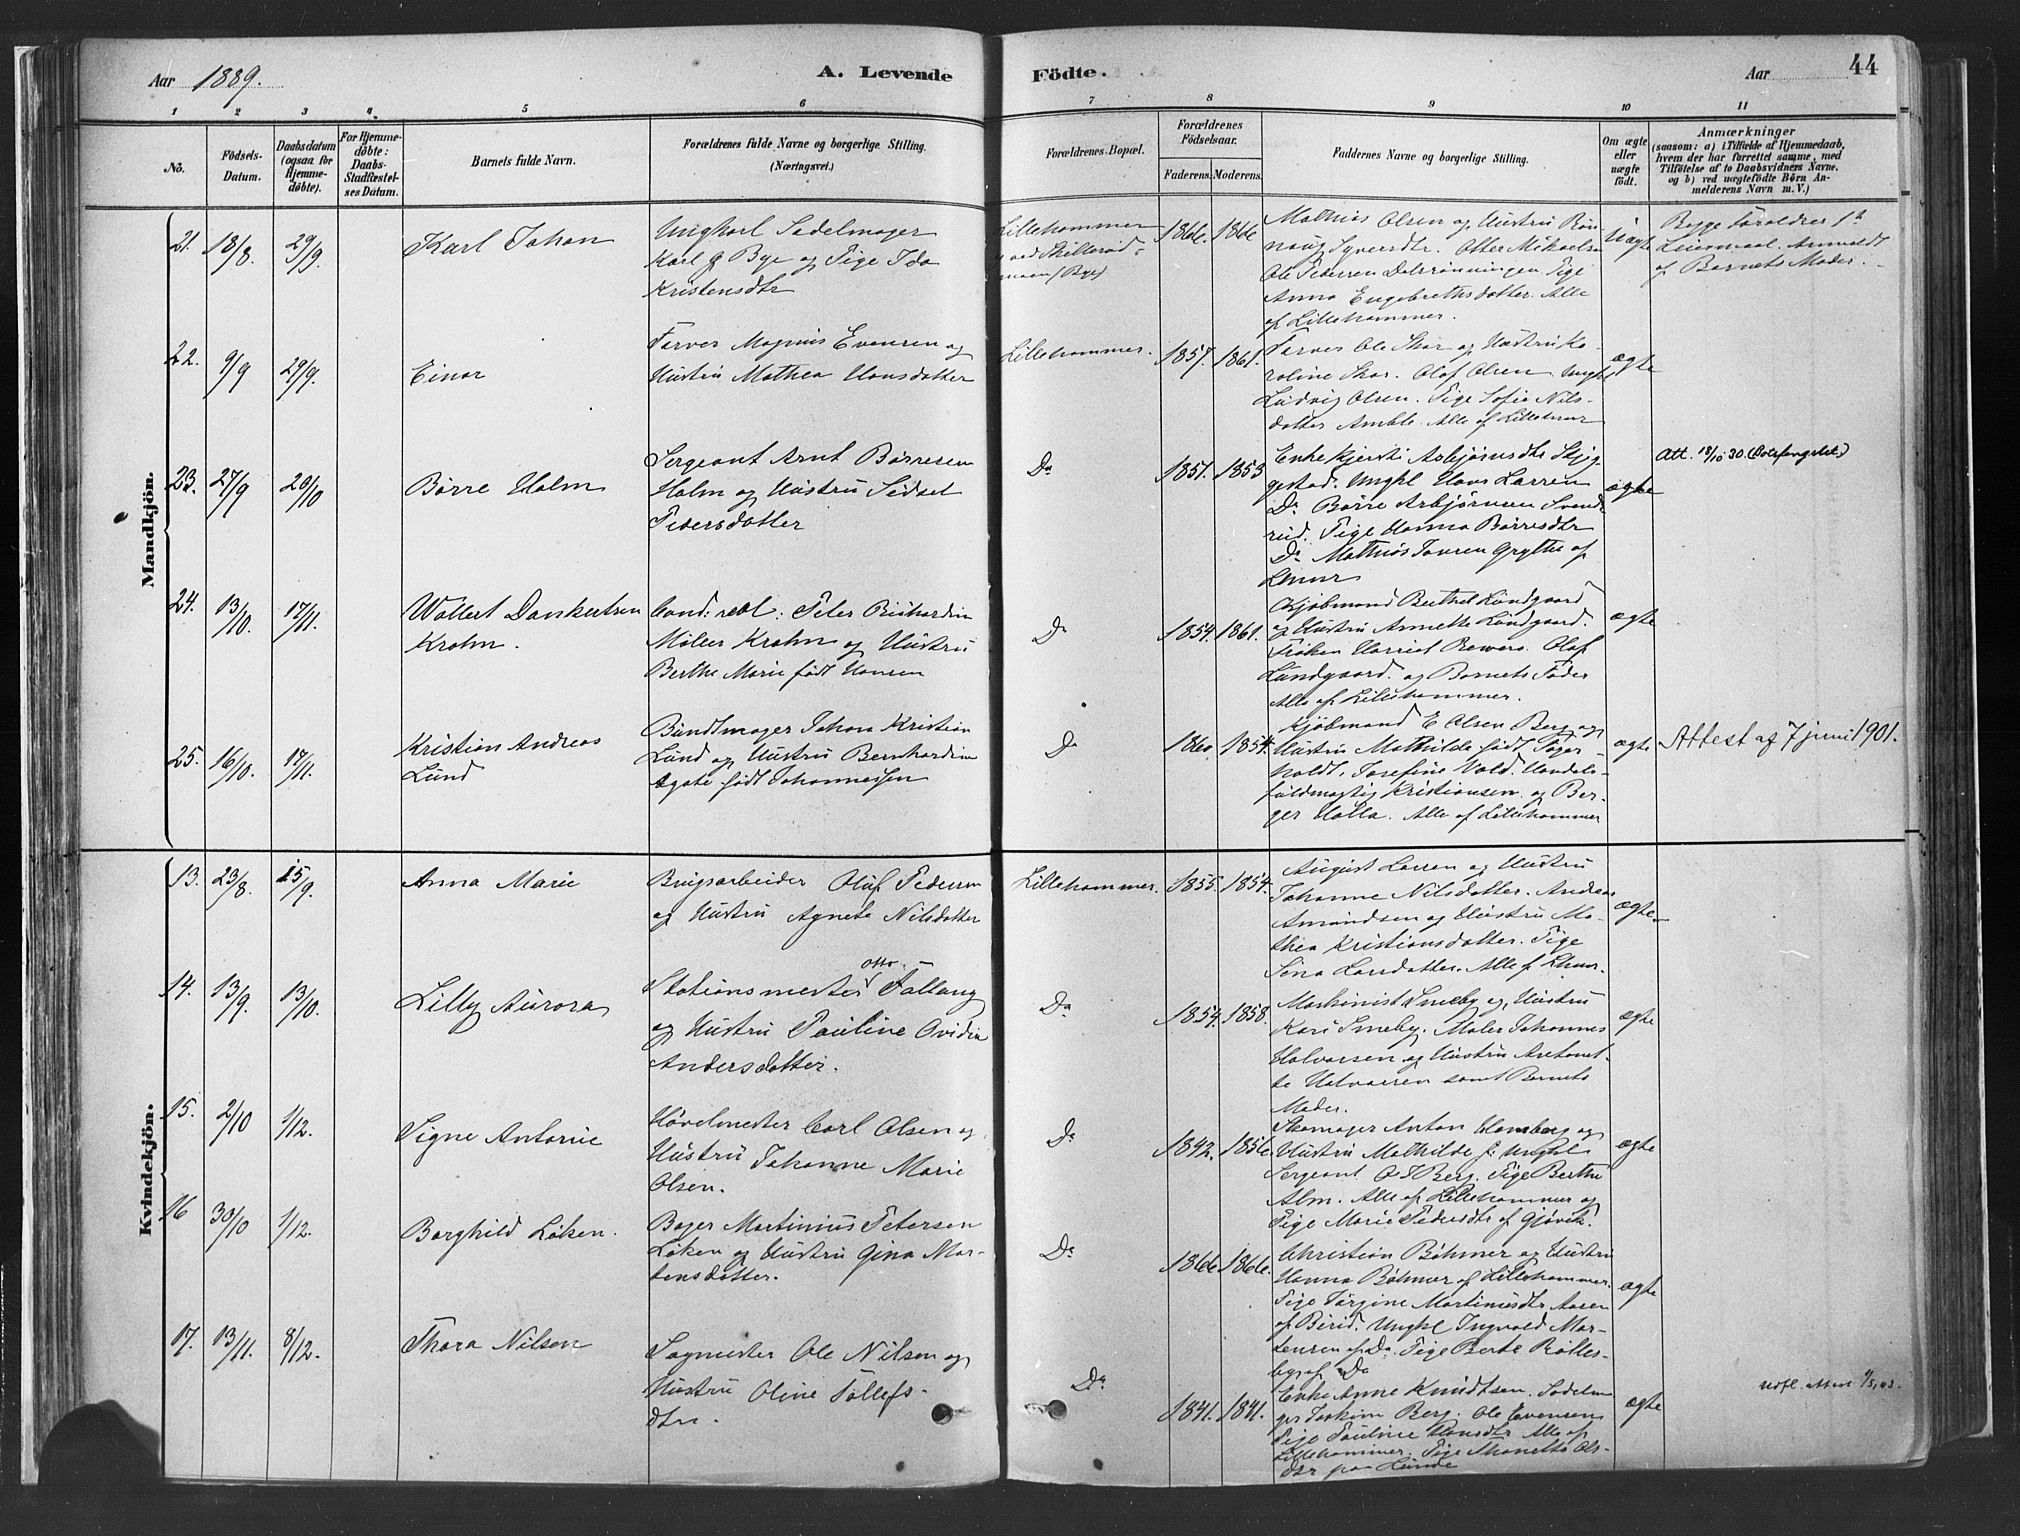 Aar 1889.
A. Levende Födte.
Aar
44
1 2 3 4 5 6 7 8 9 10 11
No.
Födsels-Datum.
Daabsdatum (ogsaa for Hjemme-døbte).
For Hjemme-døbte: Daabs-Stadfæstel-ses Datum.
Barnets fulde Navn.
Forældrenes fulde Navne og borgerlige Stilling. (Næringsvei.)
Forældrenes Bopæl.
Forældrenes Födselsaar.
Faderens. Moderens.
Faddernes Navne og borgerlige Stilling.
Om ægte eller uægte födt.
Anmærkninger
(saasom: a) i Tilfælde af Hjemmedaab, hvem der har forrettet samme, med Tilföielse af to Daabsvidners Navne, og b) ved uægtefödte Börn An-melderens Navn m. V.)
Mandkjön.
21. 18/8. 29/9. Karl Johan
Ungkarl Sadelmager
Karl G Bye og Pige Ida
Kristensdtr
Lillehammer
1866. 1866
Mathias Olsen og Hustru Rön-
naug Syversdtr. Otter Mikaelsen
Ole Pedersen Dalsrønningen. Pige
Anna Engebrethsdatter. Alle
af Lillehammer.
Uægte
Begge Foræld­res 1ste
Leiermaal. Anmeldt
af Barnets Moder.
22. 9/9 29/9. Einar
Farver Magnus Evensen og
Hustru Mathea Hansdatter
Lillehammer.
1857. 1861.
Farver Ole Skar og Hustru Ka-
roline Skar. Olaf Olsen. Ungkl
Ludvig Olsen. Pige Sofie Nils-
datter Amble. Alle af Lillehmr
ægte
23. 27/9 20/10 Börre Holm
Sergeant Arnt Börresen
Holm og Hustru Sidsel
Pedersdatter
Do
1851. 1853
Enke Kjersti Asbjørnsdtr Skjeg-
gestad. Ungkl Hans Larsen
Do Börre Asbjørnsen Svend-
rud. Pige Hanna Börresdtr
Do Mathias Jonsen Grythe af
Lhmr
ægte
Att. 18/10 30
24. 13/10. 17/11. Wollert Dankertsen
Krohn.
Cand: real: Peter Richardin
Møller Krohn og Hustru
Berthe Marie født Hansen
Do
1854. 1861.
Kjøbmand Berthel Lundgaard
og Hustru Annette Lundgaard.
Frøken Harriet Rewers. Olaf
Lundgaard. og Barnets Fader
Alle af Lillehammer.
ægte
25. 16/10. 17/11. Kristian Andreas
Lund
Bundtmager Johan Kristian
Lund og Hustru Bernhardine
Agate født Johannessen
Do
1860 1854.
Kjøbmand E Olsen Berg og
Hustru Mathilde født Fager-
holdt. Josefine Vold. Handels-
fuldmægtig Kristiansen og Ber-
ger Holla. Alle af Lillehammer
ægte
Attest af 7 juni 1901.
Kvindekjön.
13. 23/8. 15/9. Anna Marie
Brugsarbeider Oluf Pedersen
og Hustru Agnete Nilsdatter
Lillehammer.
1855. 1854.
August Larsen og Hustru
Johanne Nilsdatter. Andreas
Amundsen og Hustru Ma-
thea Kristiansdatter. Pige
Sina Larsdatter. Alle af Lhmr.
ægte
14. 13/9. 13/10. Lilly Aurora
Stationsmester Otto Fallang
og Hustru Pauline Ovidia
Andersdatter.
Do
1854. 1858.
Maskinist Smeby og Hustru
Kari Smeby. Maler Johannes
Halvorsen og Hustru Antonet-
te Halvorsen samt Barnets
Moder.
ægte
15. 2/10 1/12. Signe Antonie
Høvelmester Carl Olsen og
Hustru Johanne Marie
Olsen.
Do
1842. 1856.
Skomager Anton Hamberg og
Hustru Mathilde f: Ungkl
Sergeant O S Berg. Pige Berthe
Alm. Alle af Lillehammer og
Pige Marie Pedersdtr af Gjøvik.
ægte
16 30/10 1/12. Borghild Løken.
Bager Martinius Petersen
Løken og Hustru Gina Mor-
tensdatter.
Do
1866 1866.
Christian Böhmer og Hustru
Hanna Böhmer af Lillehammer.
Pige Jørgine Martinusdtr Aasen
af Birid. Ungkl Ingvald Mar-
tensen af Do. Pige Berte Rolles-
by af Do
ægte
17. 13/11. 8/12. Thora Nilsen
Sagmester Ole Nilsen og
Hustru Oline Tollefs-
dtr.
Do
1841. 1841.
Enke Anne Knudtsen. Sadelma
ger Joakim Berg. Ole Evensen
Pige Pauline Hansdtr Alle af
Lillehammer. Pige Thonette Ols-
dtr paa Lunde
ægte
Udfl. attest